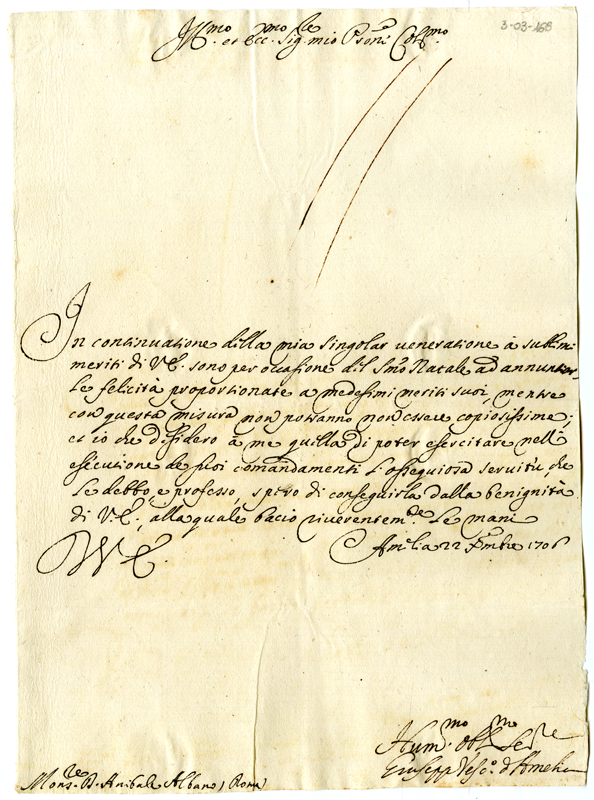 3-03-168
Ill.mo et Ecc.mo Sig.re mio P̃rone Col.mo
In continuatione della mia singolar veneratione à sublimi
meriti di V.E. sono per occasione del S̃mo Natale ad annuntiar-
Le felicità proportionate a medesimi meriti suoi, mentre
con questa misura non potranno non essere copiosissime;
et io che desidero à me quella di poter esercitare nell'
essecutione de suoi comandamenti l'ossequiosa servitù, che
Le debbo, e professo, spero di conseguirla dalla benignità
di V.E., alla quale bacio riverentem.te Le mani
Amelia 22 Xmbre 1706
V.E.
Hum.mo Obl.mo Ser.re
Giuseppe Vesc.o d'Amelia
Mons.re D. Anibale Albano, Roma